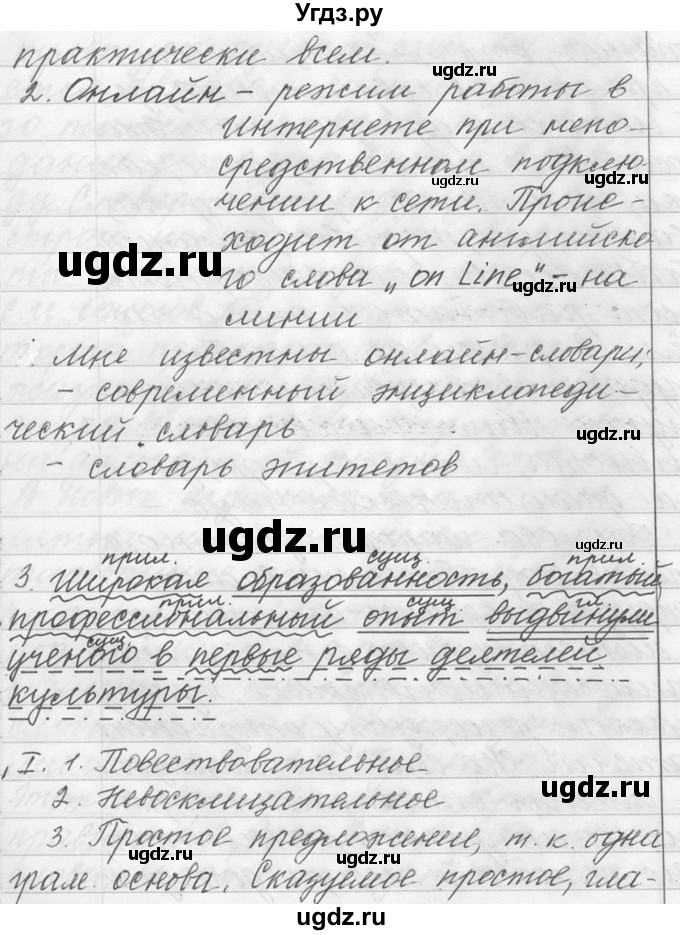 Угдз.ру
практически всем.
ugdz.ru
2. Онлайн – режим работы в
Интернете при непо-
средственном подклю-
ugdz.ru
чении к сети. Проис-
ходит от английско
ugdz.ru
го слова „on Line" – на
ugdz.ru
линии
Мне известны онлайн-словари:
– современный энциклопеди-
ческий словарь
ugdz.ru
– словарь эпитетов
ugdz.ru
прил. сущ. прил.
3. Широкая образованность, богатый
прил. сущ. гл.
профессиональный опыт выдвинули
сущ.
ученого в первые ряды деятелей
культуры.
I. 1. Повествовательное
ugdz.ru
2. Невосклицательное
3. Простое предложение, т.к. одна
ugdz.ru
грам. основа. Сказуемое простое, гла-
ugdz.ru